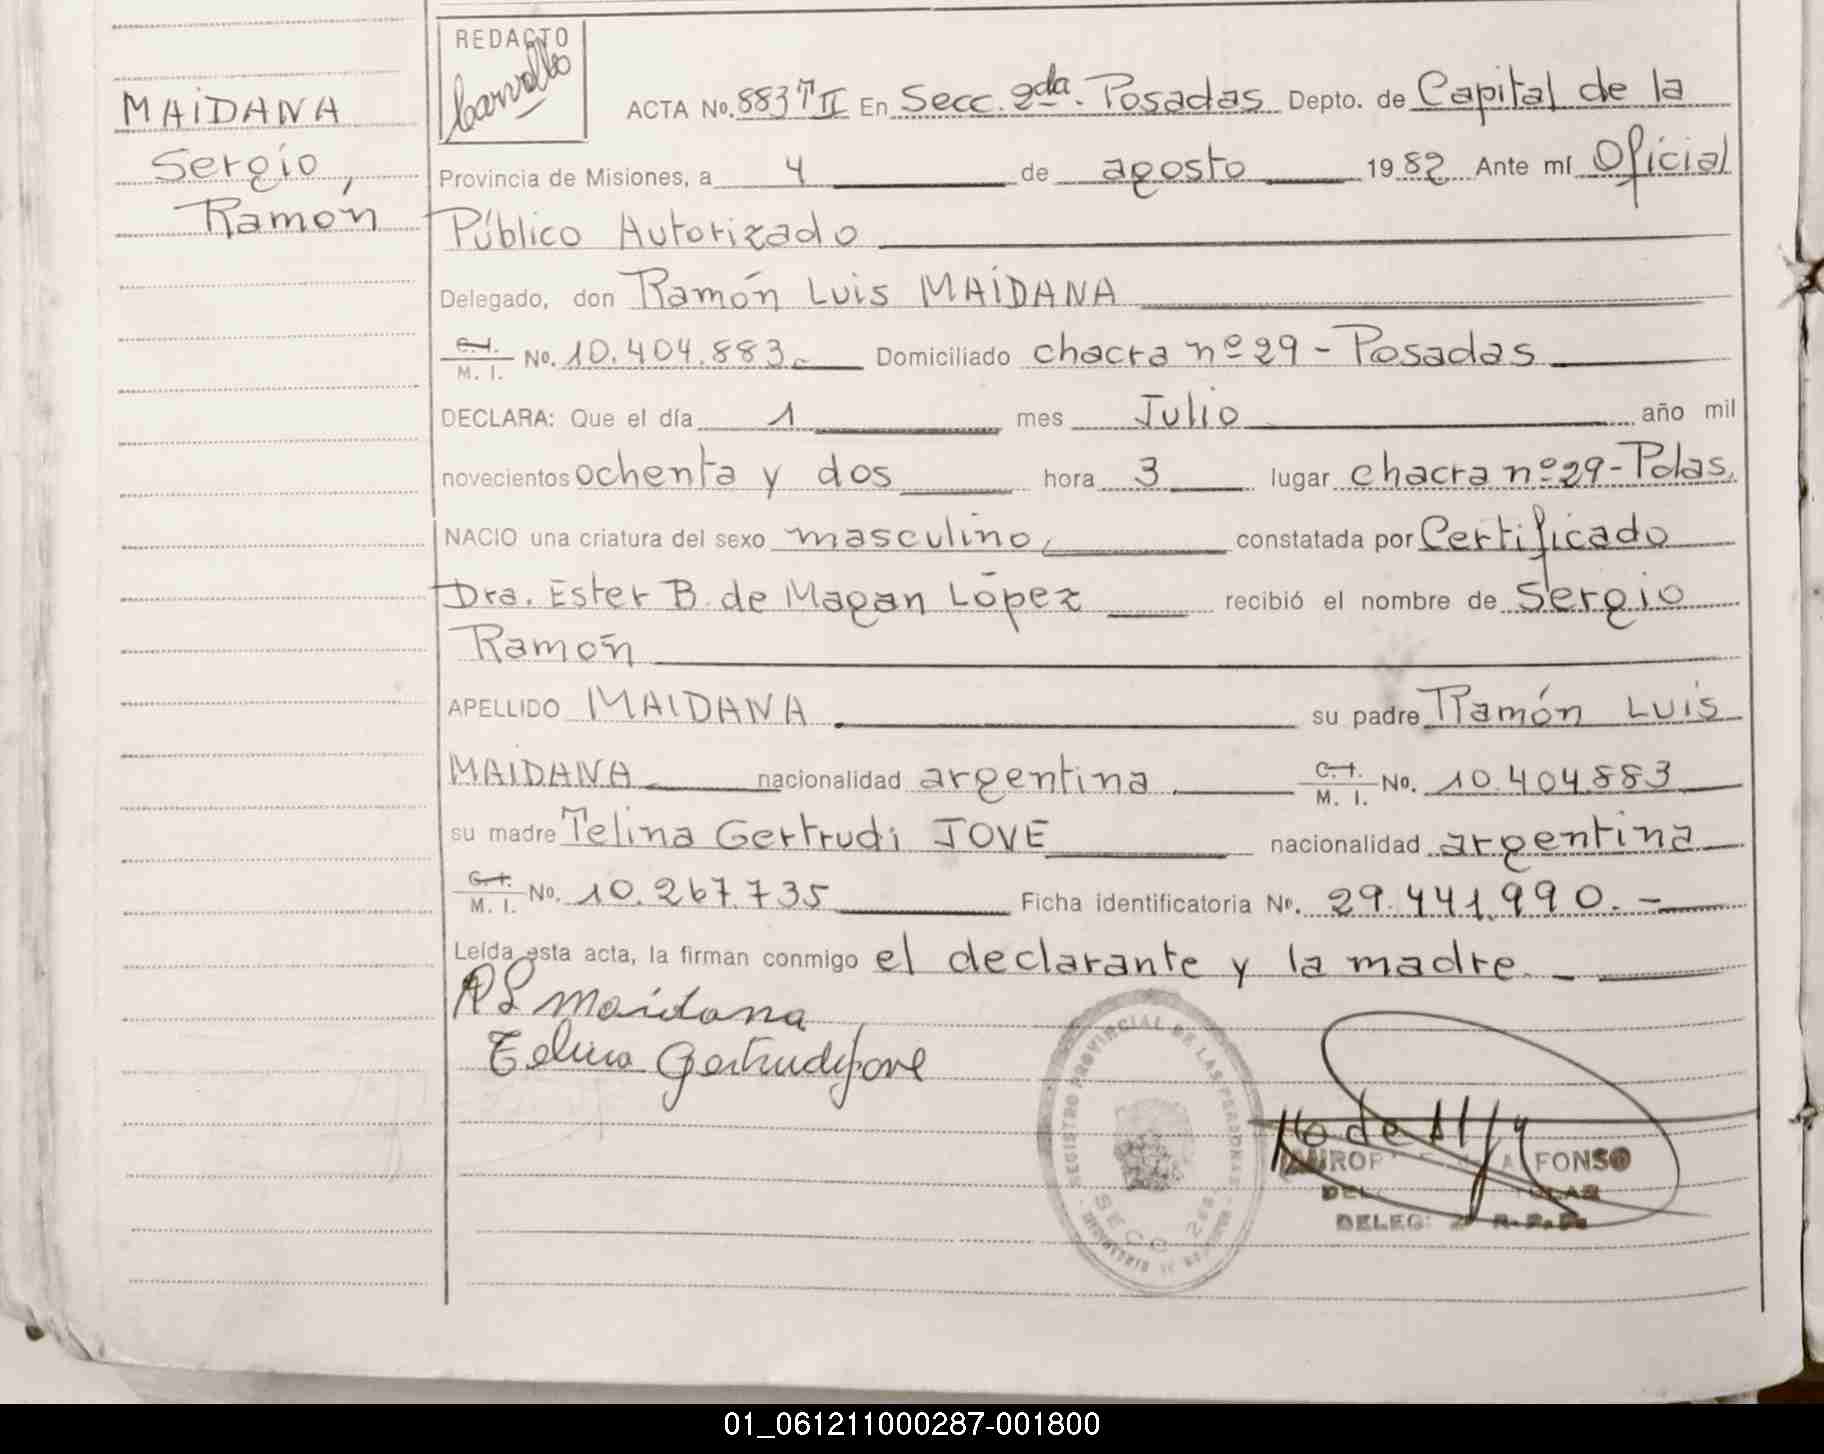 REDACTO
Carvallo
MAIDANA
Sergio,
Ramón
ACTA No. 883 T II En Secc. 2da. Posadas Depto. de Capital de la
Provincia de Misiones, a 4 de agosto 1982 Ante mí Oficial
Público Autorizado
Delegado, don Ramón Luis MAIDANA
C.I. M. I. No. 10.404.883.- Domiciliado chacra nº 29 - Posadas
DECLARA: Que el día 1 mes Julio año mil
novecientos ochenta y dos hora 3 lugar chacra nº 29 - Pdas.
NACIO una criatura del sexo masculino, constatada por Certificado
Dra. Ester B. de Magan López recibió el nombre de Sergio
Ramón
APELLIDO MAIDANA su padre Ramón Luis
MAIDANA nacionalidad argentina C.I. M. I. No. 10.404.883
su madre Telina Gertrudi JOVE nacionalidad argentina
C.I. M. I. No. 10.267.735 Ficha identificatoria No. 29.441.990.-
Leída esta acta, la firman conmigo el declarante y la madre. -
R L Maidana
Telina Gertrudi Jove
REGISTRO PROVINCIAL DE LAS PERSONAS
SECC 2da
FONSO
DELEG. 2ª R.P.P.
01_061211000287-001800